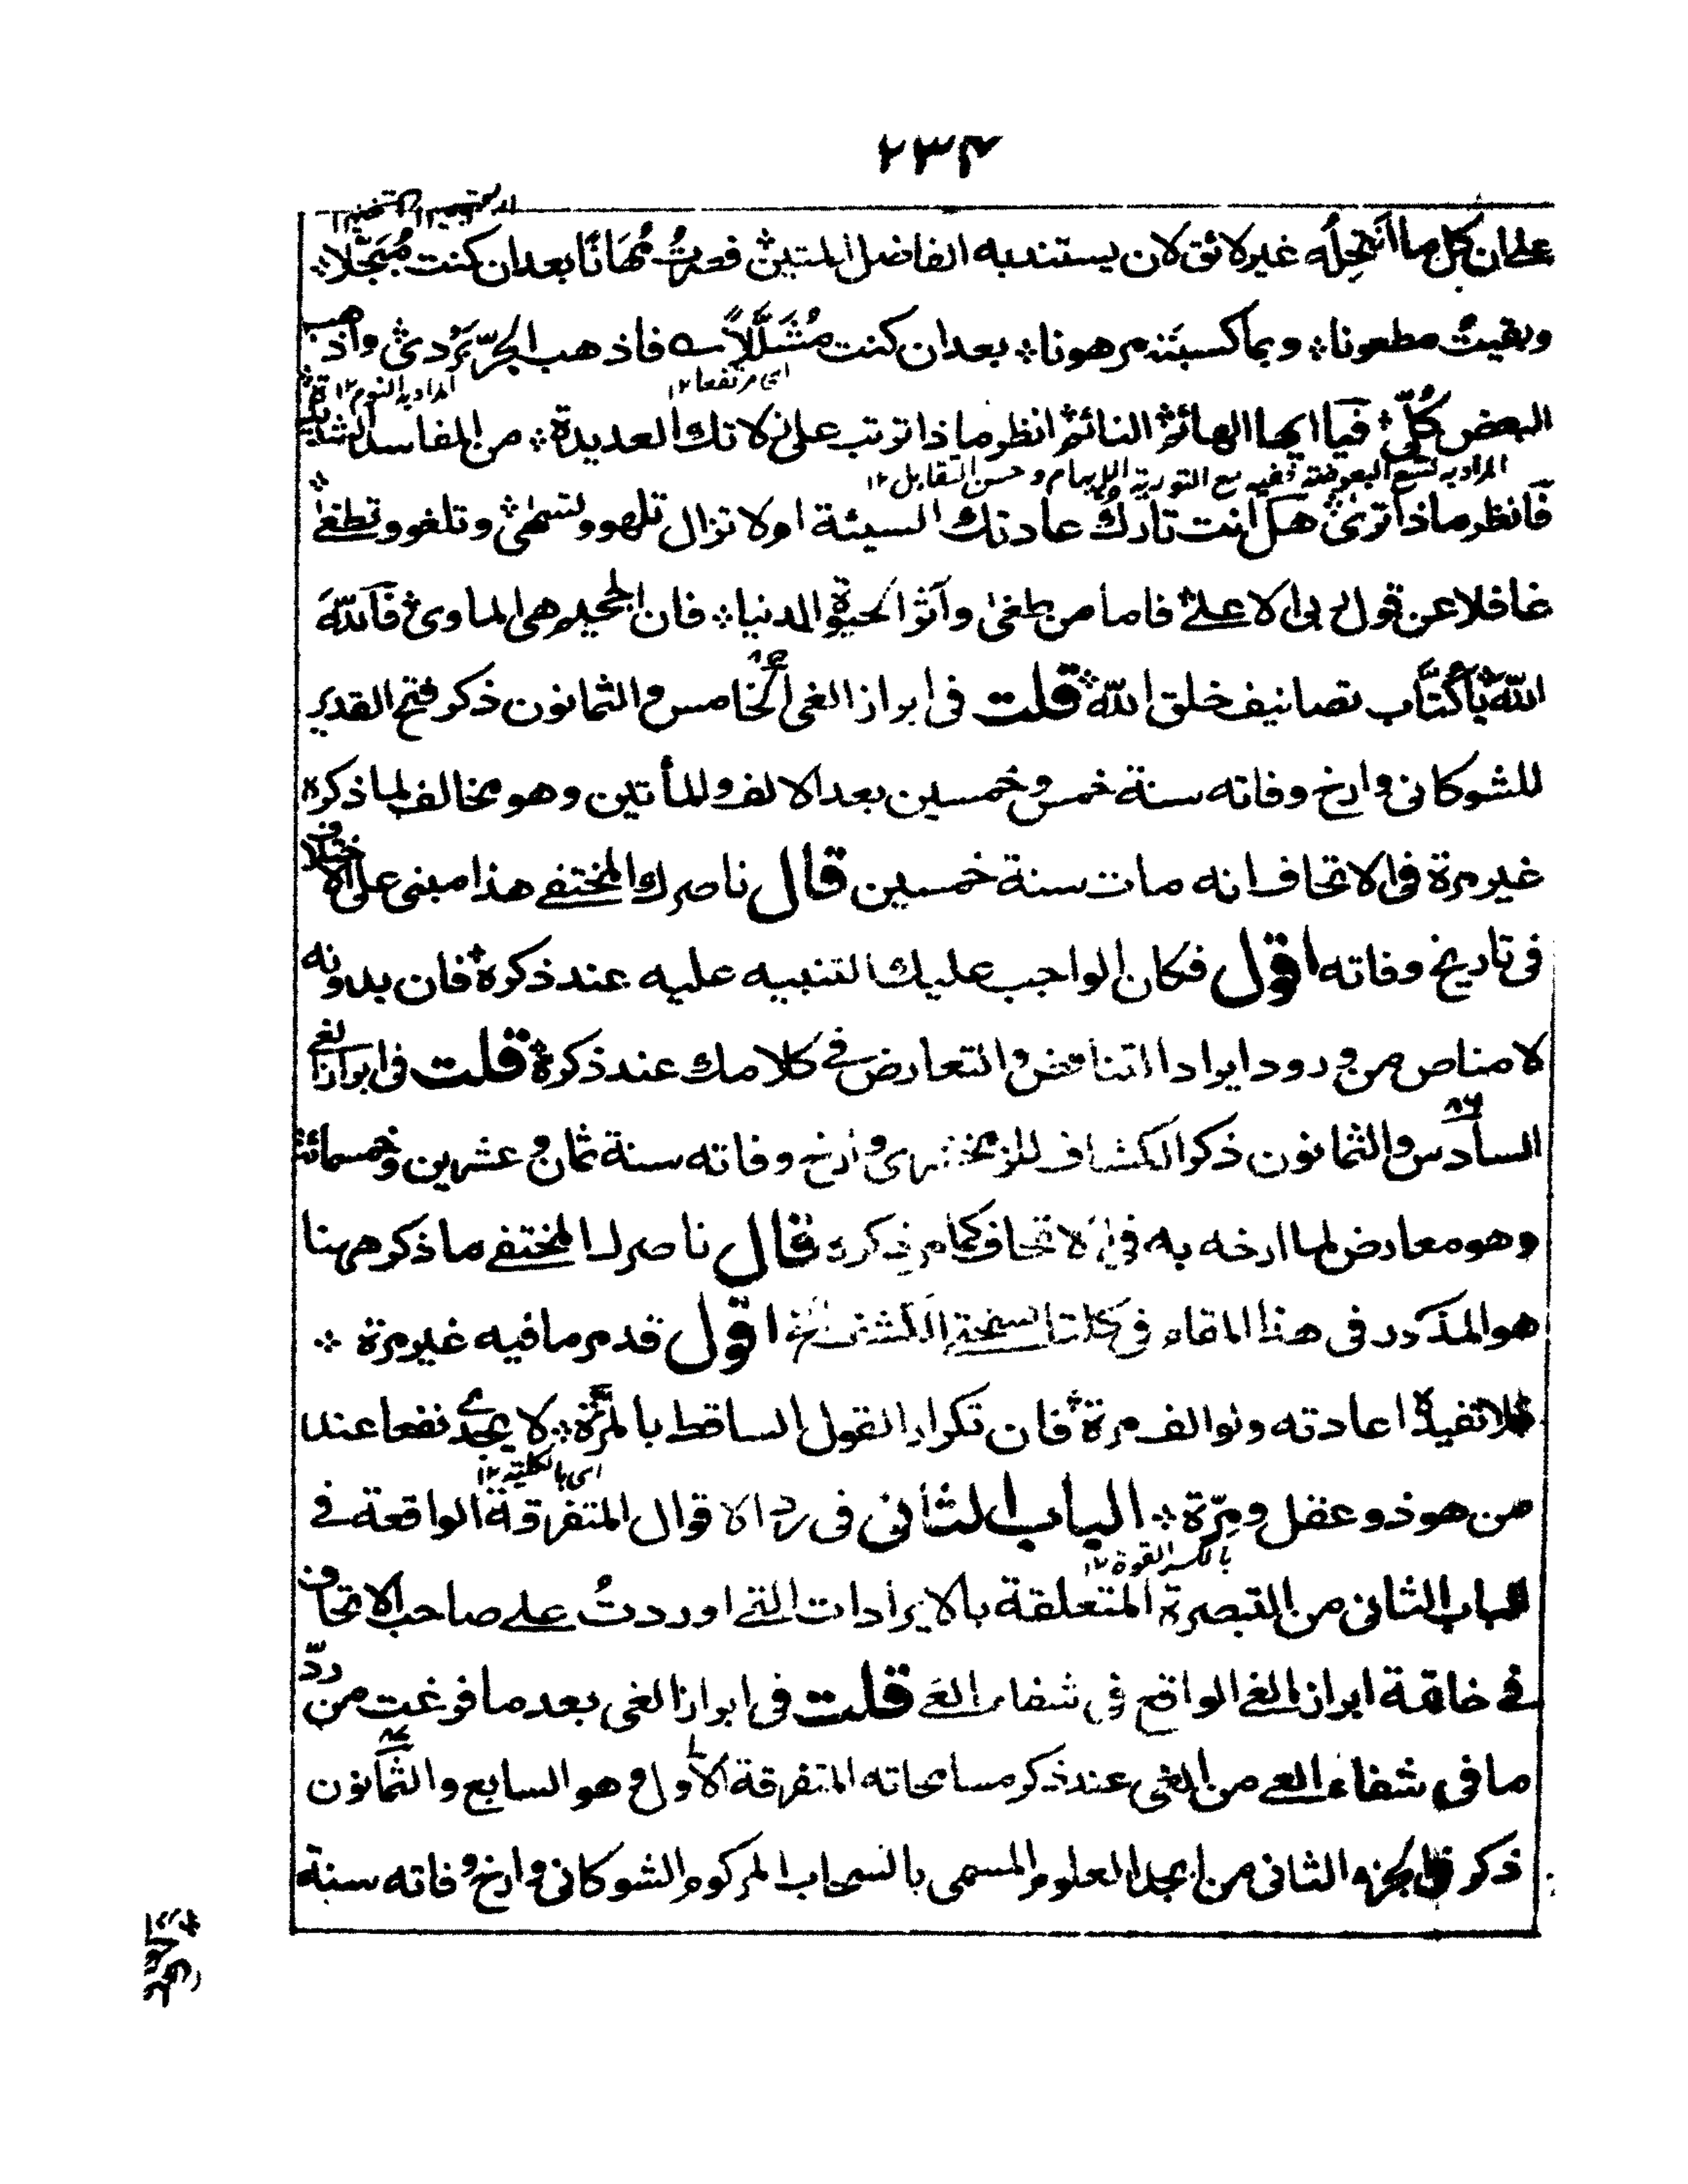 ٢٣٤
على ان كل ما أنتحِلُه غير لائق لان يستند به الفاضل المتين فصرتُ مُهَانًا بعد ان كنت مُبَجَّلا
وبقيتُ مطعونا وبما كسبتَ مرهونا بعد ان كنت مُشَلَّلًا فاذهب الجرّ بَرْدى واذهب
اى مرتفعا ١٢
المراد به النوم ١٢
البعض كُلّى فيا ايها الهائم النائم انظر ماذا ترتب على زلاتك العديدة من المفاسد الشديدة
المراد به لسع البعوضة ففيه مع التورية الايهام وحسن التقابل ١٢
فانظر ماذا ترى هل انت تارك عادتك السيئة او لا تزال تلهو وتسهى وتلغو وتطغى
غافلا عن قول ربى الاعلى فاما من طغى وآثر الحيوة الدنيا فان الجحيم هى الماوى فآللهَ
اللهَ يا كُتَّاب تصانيف خلق الله قلت فى ابراز الغى الخامس والثمانون ذكر فتح القدير
٨٥
للشوكانى وارخ وفاته سنة خمس وخمسين بعد الالف والمأتين وهو مخالف لما ذكره
غير مرة فى الاتحاف انه مات سنة خمسين قال ناصرك المختفى هذا مبنى على الاختلاف
فى تاريخ وفاته اقول فكان الواجب عليك التنبيه عليه عند ذكره فان بدونه
لا مناص من ورود ايراد التناقض والتعارض فى كلامك عند ذكره قلت فى ابراز الغى
٨٦
السادس والثمانون ذكر الكشاف للزمخشرى وارخ وفاته سنة ثمان وعشرين وخمسمائة
وهو معارض لما ارخه به فى الاتحاف كما مر ذكره قال ناصرك المختفى ما ذكر ههنا
هو المذكور فى هذا المقام فى كلتا نسختى الكشف الخ اقول قد مر ما فيه غير مرة
فلا تفيد اعادته ولو الف مرة فان تكرار القول الساقط بالمرّة لا يجدى نفعا عند
اى بالكلية ١٢
من هو ذو عقل ومِرّة الباب الثانى فى رد الاقوال المتفرقة الواقعة فى
بالكسر القوة ١٢
الباب الثانى من التبصرة المتعلقة بالايرادات التى اوردتُ على صاحب الاتحاف
فى خاتمة ابراز الغى الواقع فى شفاء العى قلت فى ابراز الغى بعد ما فرغت من ردّ
ما فى شفاء العى من الغى عند ذكر مسامحاته المتفرقة الاول وهو السابع والثمانون
٨٧
ذكر فى الجزء الثانى من ابجد العلوم المسمى بالسحاب المركوم الشوكانى وارخ وفاته سنة